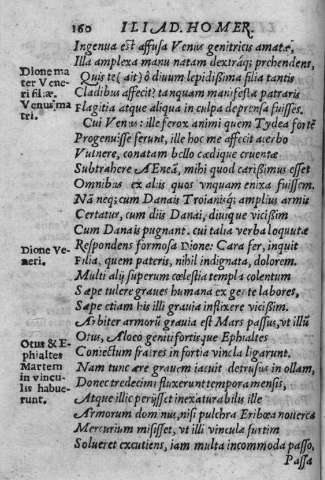 160 ILIAD. HOMER.
Ingenua est affusa Venus genitricis amatæ,
Illa amplexa manu natam dextraq; prehendens,
Dione ma
ter Vene
ri filiæ.
Venus ma
tri.
Quis te (ait) ô diuum lepidissima filia tantis
Cladibus affecit? tanquam manifesta patraris
Flagitia atque aliqua in culpa deprensa fuisses.
Cui Venus: ille ferox animi quem Tydea fortē
Progenuisse ferunt, ille hoc me affecit acerbo
Vulnere, conatam bello cædique cruentæ
Subtrahere AEneā, mihi quod carissimus esset
Omnibus ex aliis quos vnquam enixa fuissem.
Nā neq; cum Danais Troianisq; amplius armis
Certatur, cum diis Danai, diuique vicissim
Cum Danais pugnant. cui talia verba loquutæ
Dione Ve-
neri.
Respondens formosa Dione: Cara fer, inquit
Filia, quem pateris, nihil indignata, dolorem.
Multi alij superum cœlestia templa colentum
Sæpe tulere graues humana ex gente labores,
Sæpe etiam his illi grauia inflixere vicissim.
Arbiter armorū grauia est Mars passus, vt illū
Otus & E-
phialtes
Martem
in vincu-
lis habue-
runt.
Otus, Aloeo geniti fortisque Ephialtes
Coniectum fratres in fortia vincla ligarunt.
Nam tunc ære grauem iacuit detrusus in ollam,
Donec tredecimi fluxerunt tempora mensis,
Atque illic perijsset inexaturabilis ille
Armorum dominus, nisi pulchra Eribœa nouerca
Mercurium misisset, vt illi vincula furtim
Solueret excutiens, iam multa incommoda passo,
Passa